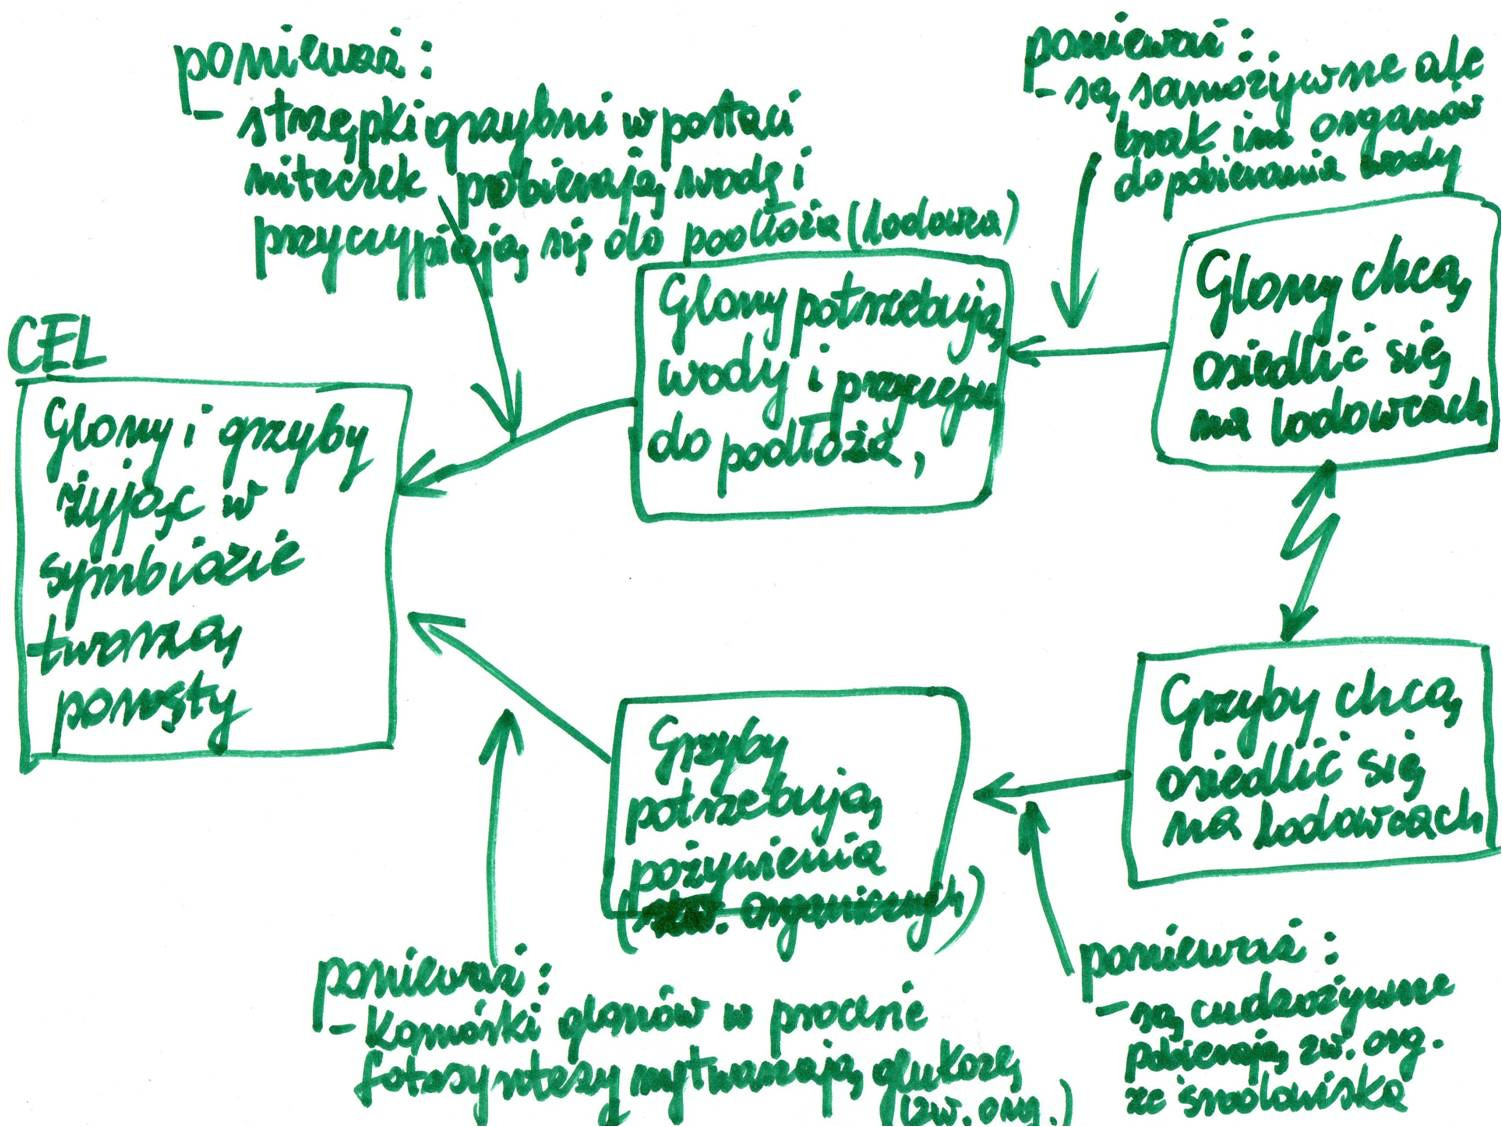 ponieważ:
- strzępki grzybni w postaci
niteczek pobierają wodę i
przyczypiają się do podłoża (lodowca)
ponieważ:
- są samożywne ale
brak im organów
do pobierania wody
CEL
Glony i grzyby
żyjąc w
symbiozie
tworzą
porosty
Glony potrzebują
wody i przyczepu
do podłoża,
Glony chcą
osiedlić się
na lodowcach
Grzyby
potrzebują
pożywienia
(zw. organicznych)
Grzyby chcą
osiedlić się
na lodowcach
ponieważ:
- Komórki glonów w procesie
fotosyntezy wytwarzają glukozę
(zw. org.)
ponieważ:
- są cudzożywne
pobierają zw. org.
ze środowiska